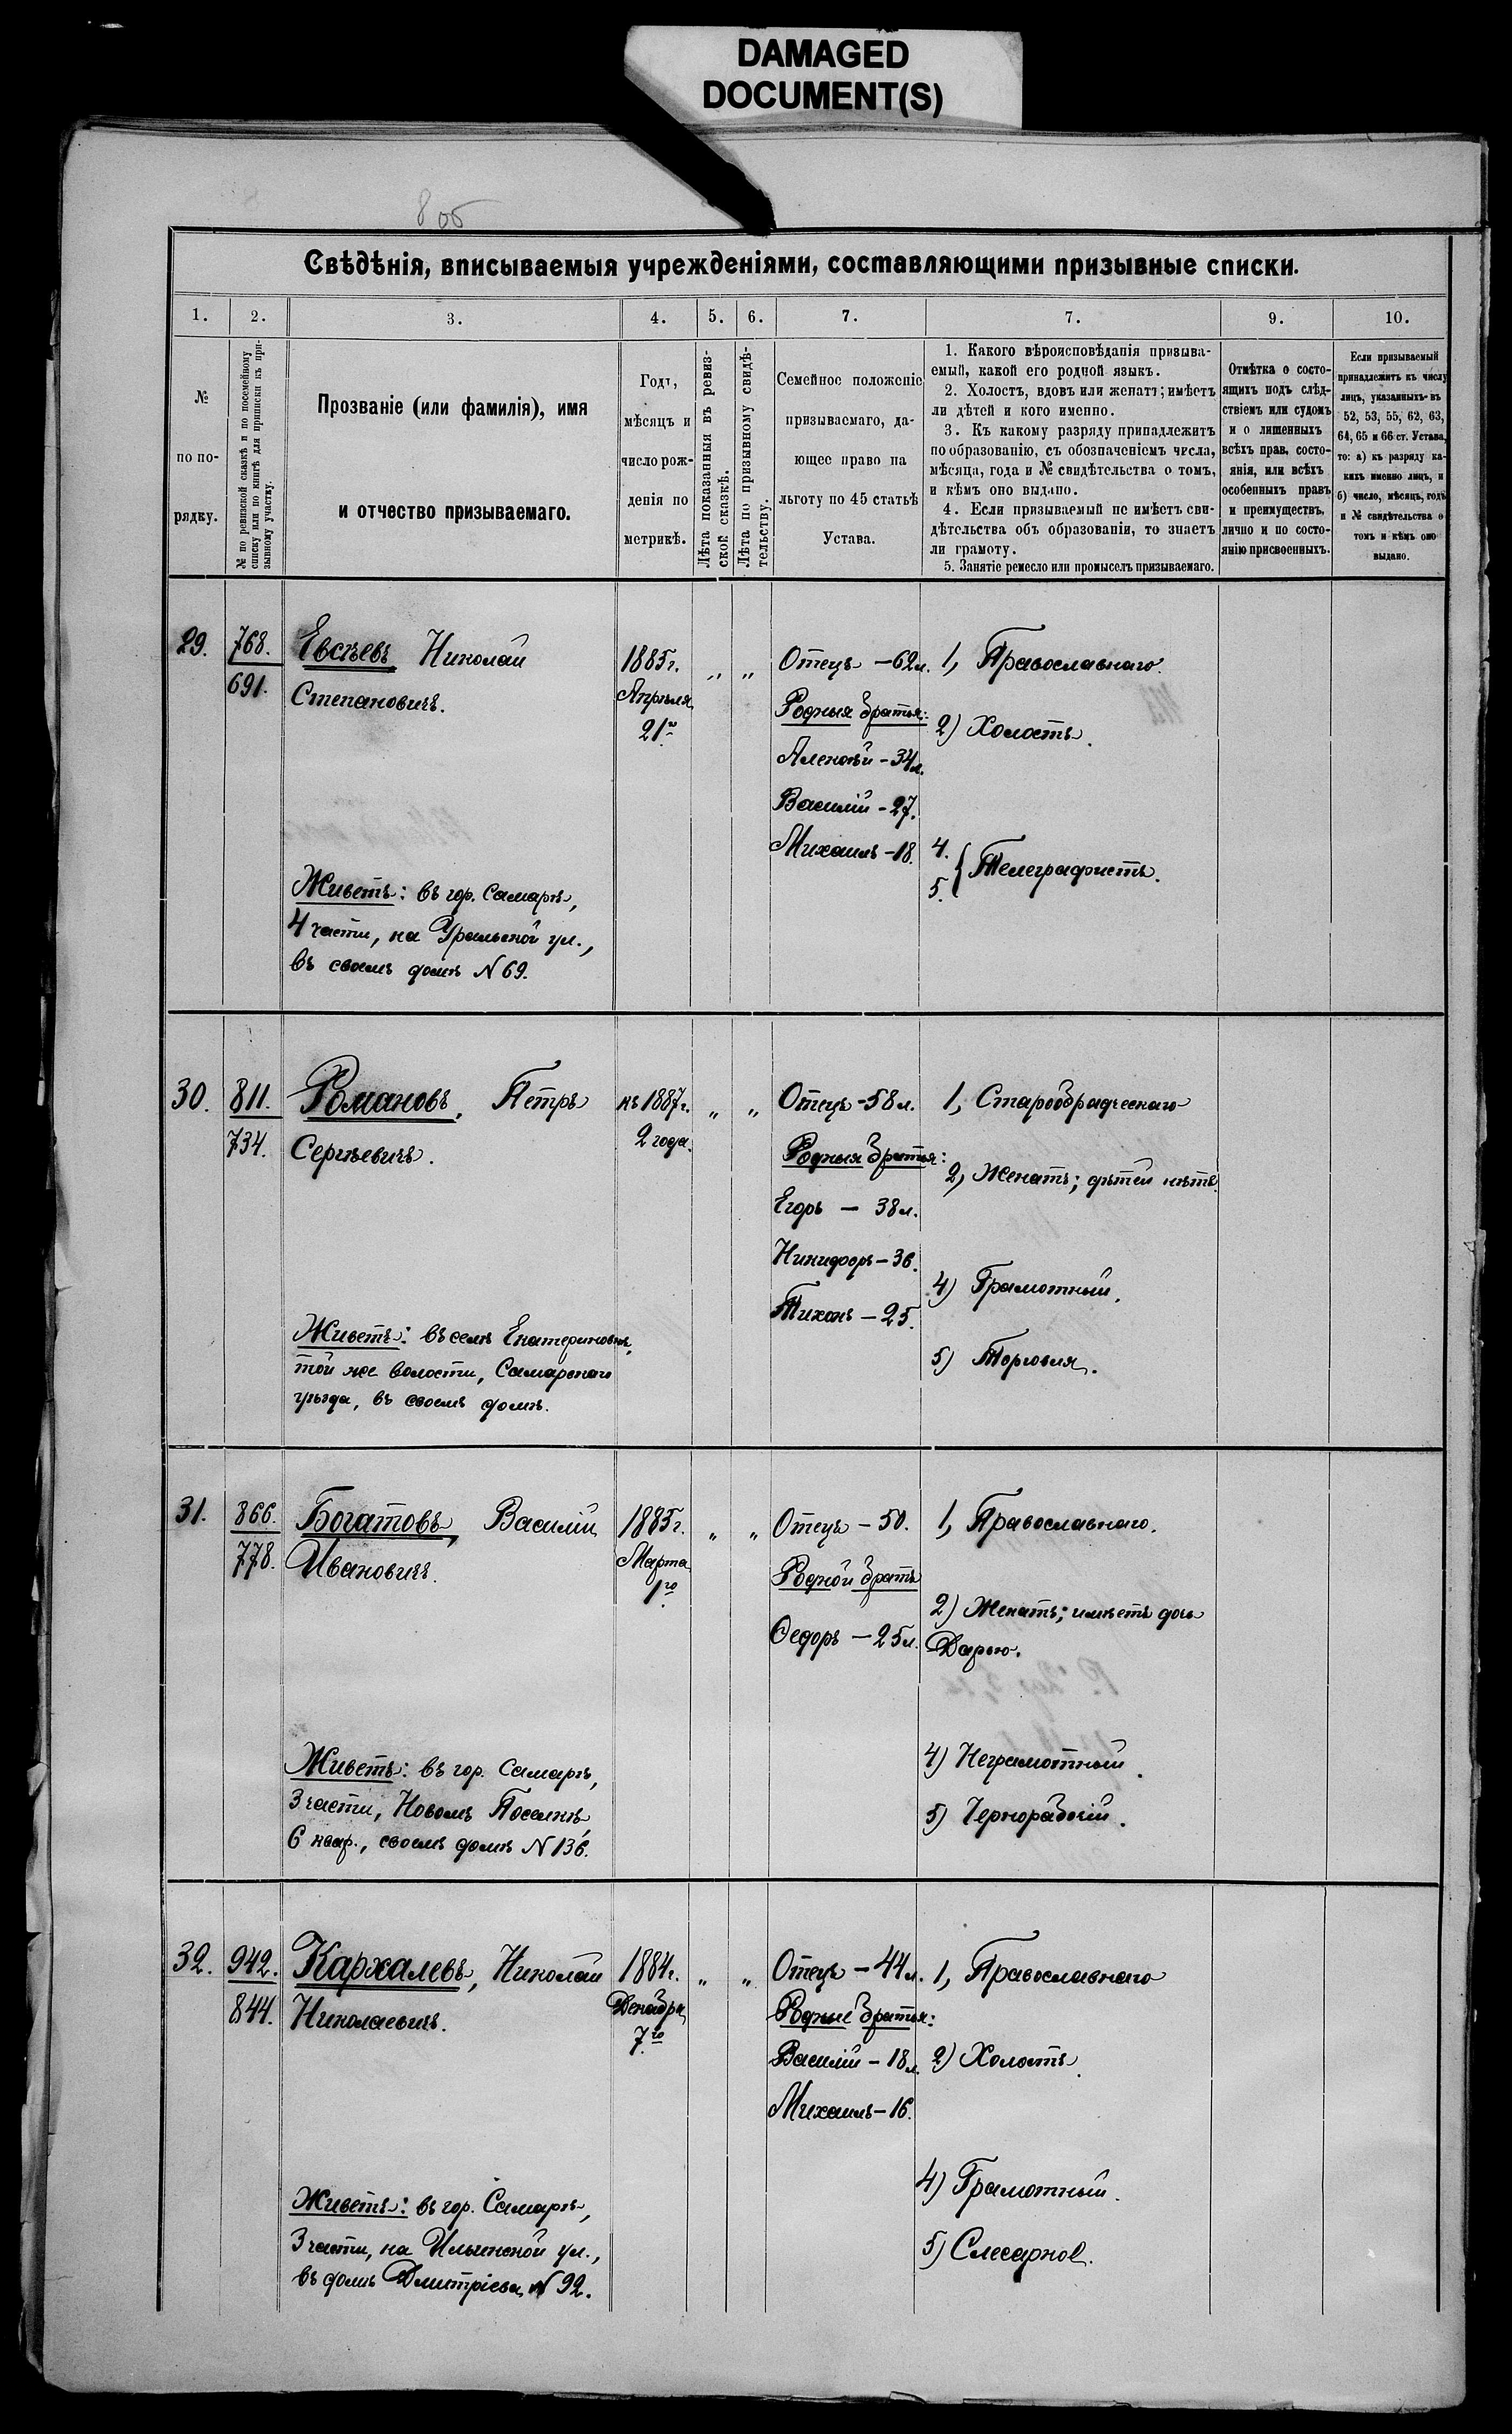 DAMAGED
DOCUMENT(S)
8 об
Свѣдѣнія, вписываемыя учрежденіями, составляющими призывные списки.
1. 2. 3. 4. 5. 6. 7. 7. 9. 10.
№
по по-
рядку.
№ по ревизской сказкѣ и по посемейному
списку или по книгѣ для приписки къ при-
зывному участку.
Прозваніе (или фамилія), имя
и отчество призываемаго.
Годъ,
мѣсяцъ и
число рож-
денія по
метрикѣ.
Лѣта показанныя въ ревиз-
ской сказкѣ.
Лѣта по призывному свидѣ-
тельству.
Семейное положеніе
призываемаго, да-
ющее право на
льготу по 45 статьѣ
Устава.
1. Какого вѣроисповѣданія призыва-
емый, какой его родной языкъ.
2. Холостъ, вдовъ или женатъ; имѣетъ
ли дѣтей и кого именно.
3. Къ какому разряду принадлежитъ
по образованію, съ обозначеніемъ числа,
мѣсяца, года и № свидѣтельства о томъ,
и кѣмъ оно выдано.
4. Если призываемый не имѣетъ сви-
дѣтельства объ образованіи, то знаетъ
ли грамоту.
5. Занятіе ремесло или промыселъ призываемаго.
Отмѣтка о состо-
ящихъ подъ слѣд-
ствіемъ или судомъ
и о лишенныхъ
всѣхъ прав, состо-
янія, или всѣхъ
особенныхъ правъ
и преимуществъ,
лично и по состо-
янію присвоенныхъ.
Если призываемый
принадлежитъ къ числу
лицъ, указанныхъ въ
52, 53, 55, 62, 63,
64, 65 и 66 ст. Устава,
то: а) къ разряду ка-
кихъ именно лицъ, и
б) число, мѣсяцъ, годъ
и № свидѣтельства о
томъ и кѣмъ оно
выдано.
29.
768.
691.
Евсѣевъ Николай
Степановичъ.
Живетъ: въ гор. Самарѣ,
4 части, на Уральской ул.,
въ своемъ домѣ N 69.
1885 г.
Апрѣля
21го
" "
Отецъ – 62 л.
Родныя братья:
Алексѣй – 34 л.
Василій – 27.
Михаилъ – 18.
1, Православнаго.
2) Холостъ.
4.
5. { Телеграфистъ.
30.
811.
734.
Романовъ, Петръ
Сергѣевичъ.
Живетъ: въ селѣ Екатериновкѣ,
той же волости, Самарскаго
уѣзда, въ своемъ домѣ.
къ 1887 г.
2 года.
" "
Отецъ – 58 л.
Родныя братья:
Егоръ – 38 л.
Никифоръ – 36.
Тихонъ – 25.
1, Старообрядческаго
2, Женатъ; дѣтей нѣтъ.
4) Грамотный.
5) Торговля.
31.
866.
778.
Богатовъ, Василій
Ивановичъ.
Живетъ: въ гор. Самарѣ,
3 части, Новомъ Поселкѣ,
6 квар., своемъ домѣ N 136.
1885 г.
Марта
1го
" "
Отецъ – 50.
Родной братъ
Ѳедоръ – 25 л.
1, Православнаго.
2) Женатъ; имѣетъ дочь
Дарью.
4) Неграмотный.
5) Чернорабочій.
32.
942.
844.
Кархалевъ, Николай
Николаевичъ.
Живетъ: въ гор. Самарѣ,
3 части, на Ильинской ул.,
въ домѣ Дмитріева, N 92.
1884 г.
Декабря
7го
" "
Отецъ – 44 л.
Родные братья:
Василій – 18 л.
Михаилъ – 16.
1, Православнаго
2) Холостъ.
4) Грамотный.
5)